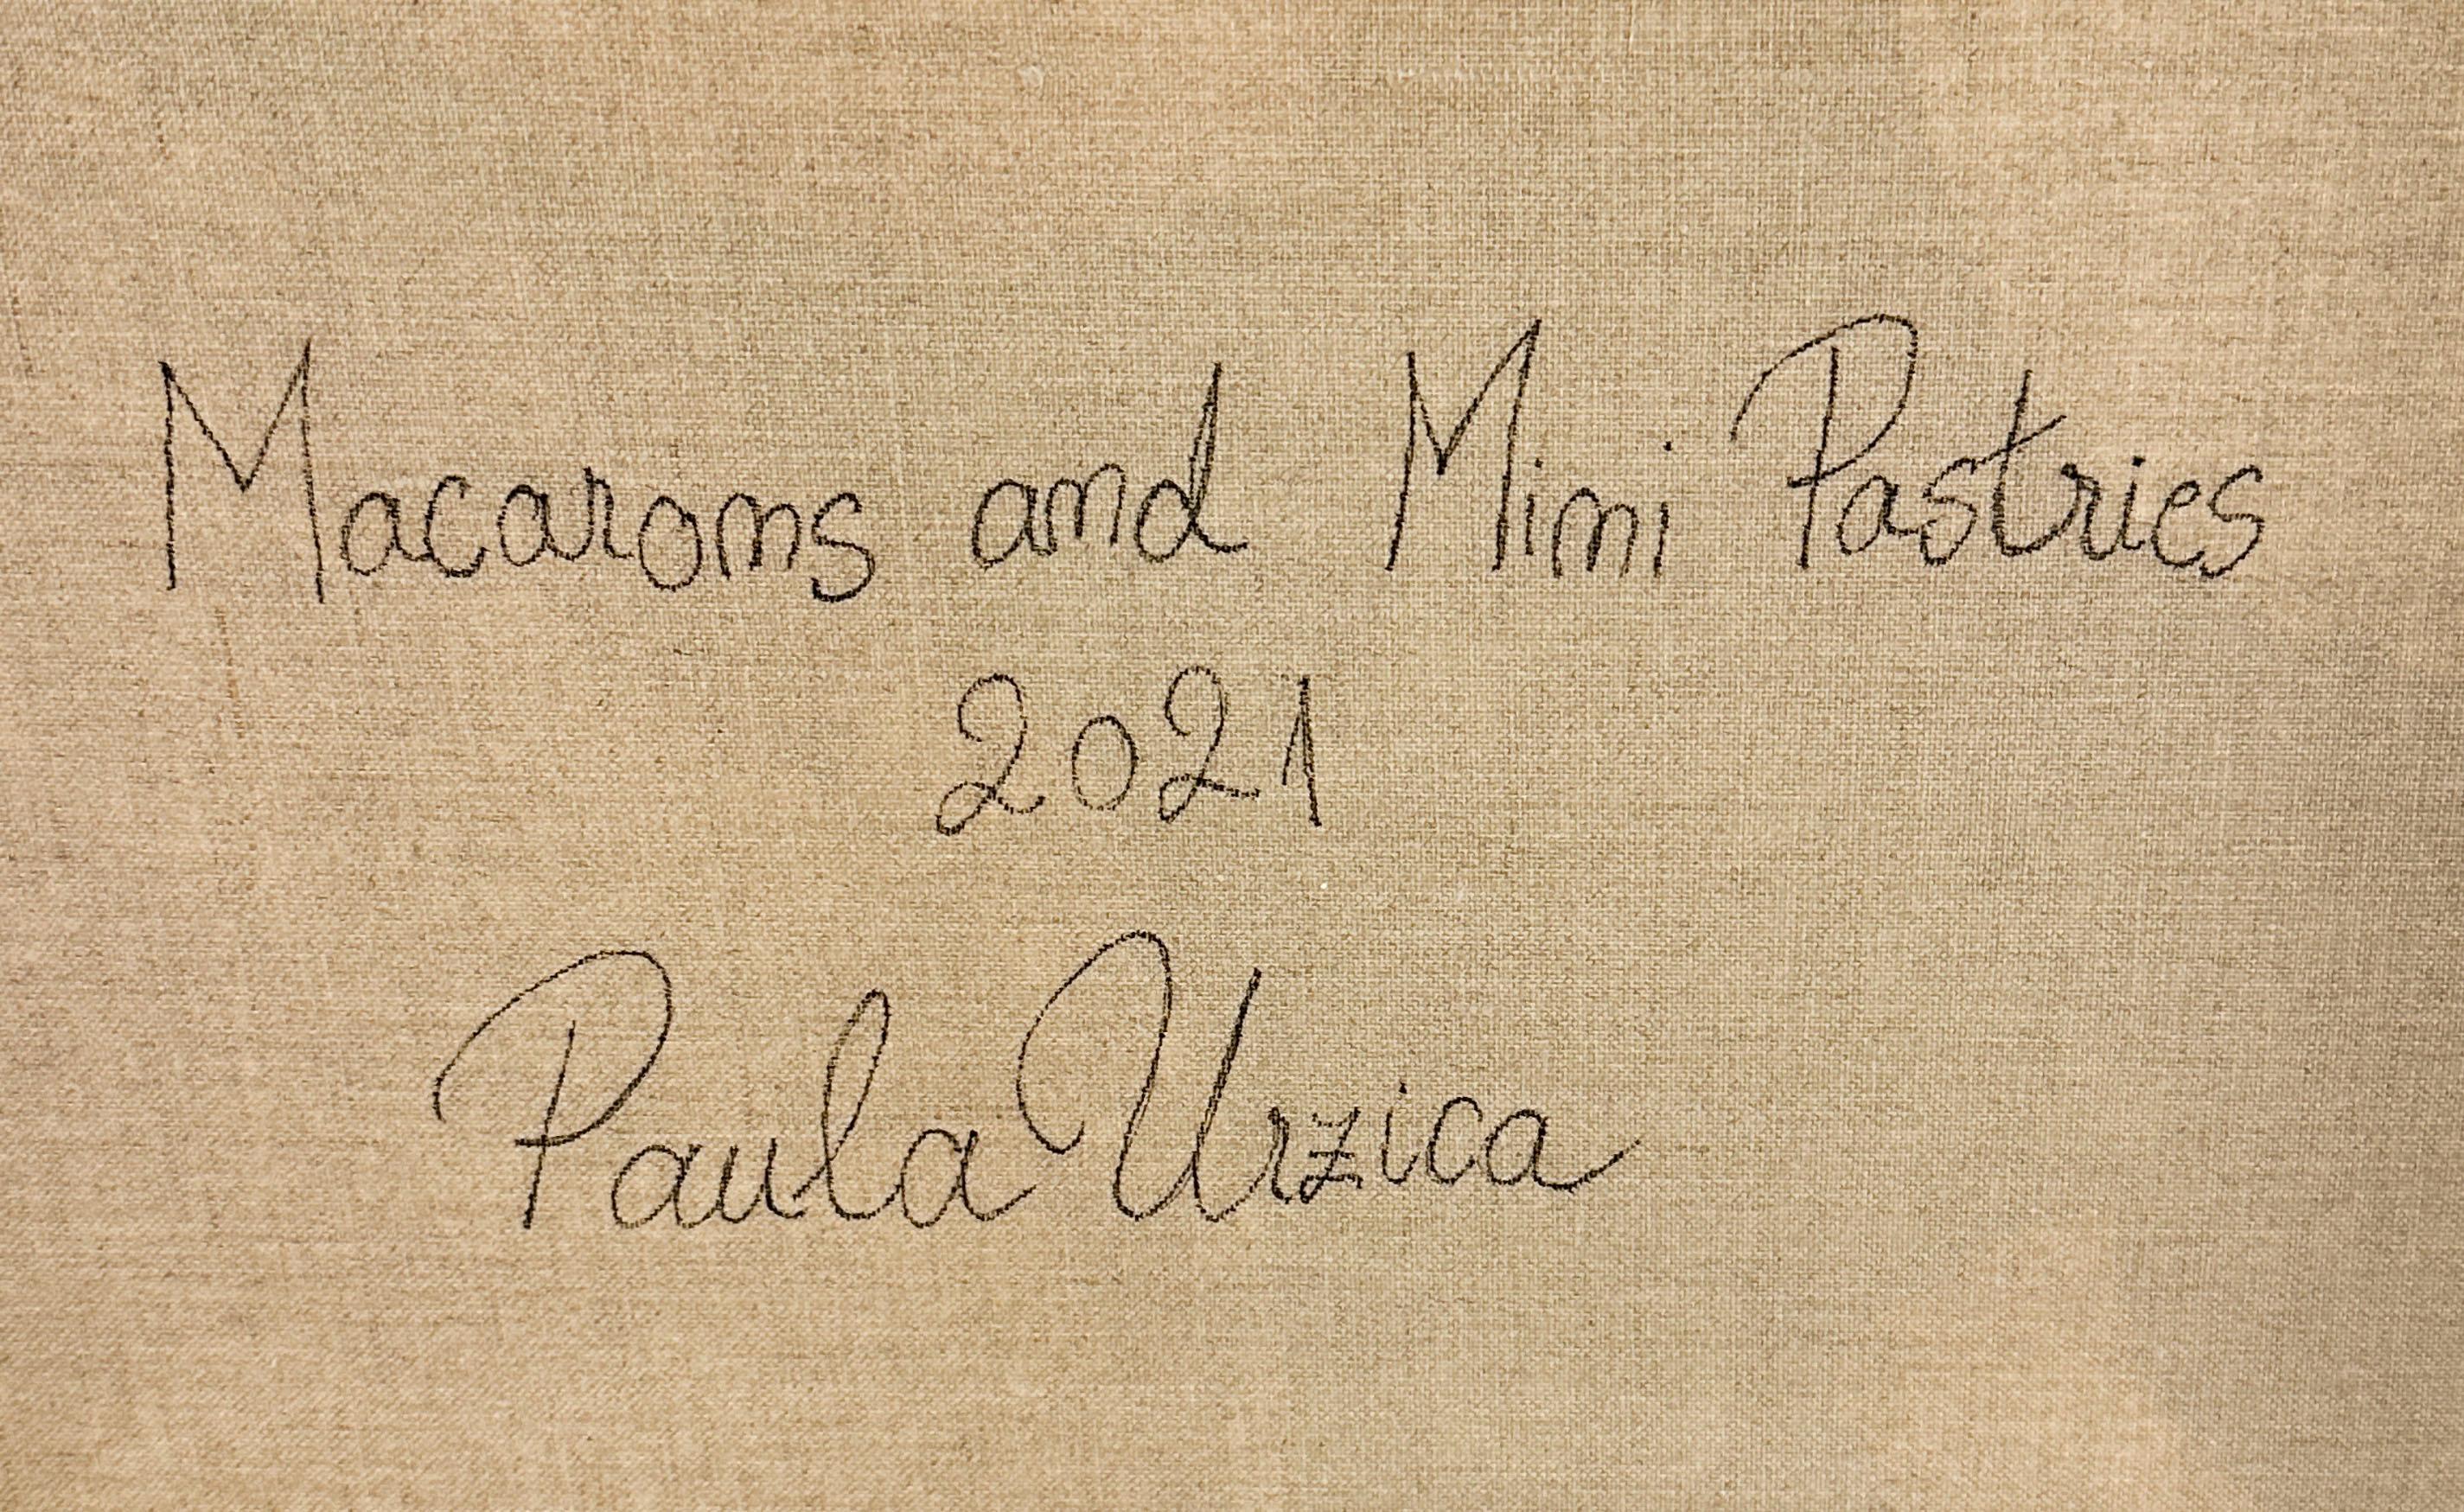 Macarons and Mini Pastries
2021
Paula Urzica